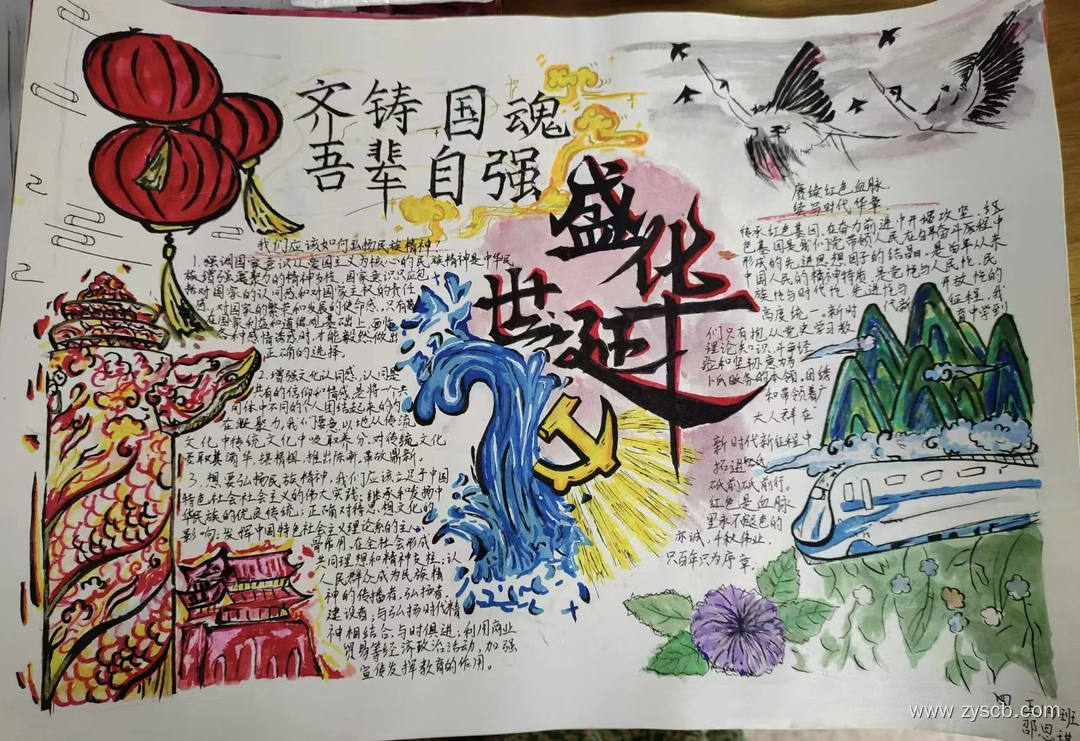 齐铸国魂
吾辈自强
盛世华延
我们应该如何弘扬民族精神?
1.强调国家意识,以爱国主义为核心的民族精神是中华民
族增强凝聚力的精神支柱。国家意识只应包
括对国家的认同感和对国家主权的责任
感,对国家的繁荣和发展的使命感,只有
在国家利益和道德观基础上,面临
利感情诱惑时,才能毅然做出
正确的选择。
2.增强文化认同感,认同是
共有的信仰和情感,是将一个共
同体中不同的个人团结起来的内
在凝聚力,我们要以地从传流
文化中传统文化中吸取养分,对传统文化
要取其精华,提精粗,推出陈新,革故鼎新。
3.想要弘扬民族精神,我们应该立足于中国
特色社会社会主义的伟大实践;继承和发扬中
华民族的优良传统;正确对待思想文化的
影响;发挥中国特色社会主义理论系的主心
骨作用,在全社会形成
共同理想和精神支柱;认
人民群众成为民族精
神的传播者、弘扬者、
建设者;与弘扬时代精
神相结合,与时俱进;利用商业
贸易等经济政治活动,加强
宣传发挥教育的作用。
赓续红色血脉
续写时代华章
传承红色基因,在奋力前进中开拓攻坚,红
色基因是我们党带领人民在百年奋斗历程中
形成的先进思想因子的结晶,是百年以来
中国人民的精神特质,是党性与人民性、民
族性与时代性、先进性与开放性的
高度统一。新时代新征程,我
们只有抱从党史学习教育中学到
理论知识、斗争经
验和坚协意力为
人民服务的本领,团结
和带领着广
大人群在
新时代新征程中
拓进
砥前砥前行。
红色是血脉
里永不褪色的
赤诚,千秋伟业,
只百年只为序章。
四
班
邵思琪
www.zyscb.com